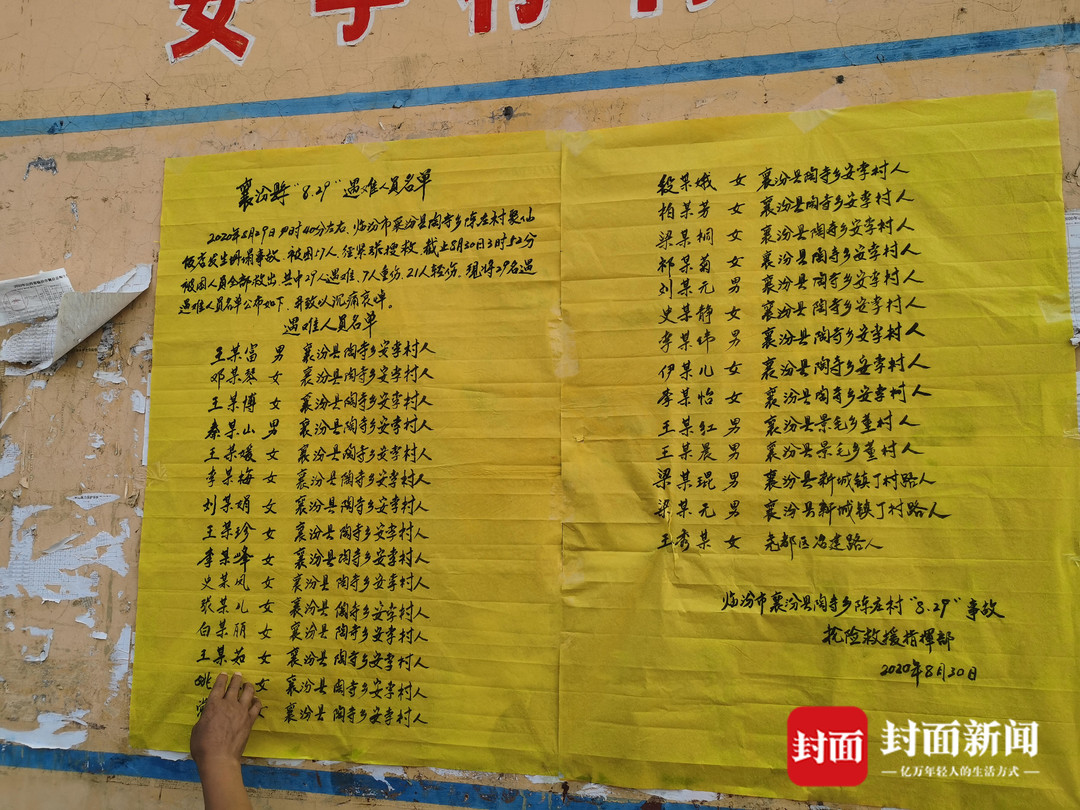 安李村村
襄汾县"8.29"遇难人员名单
2020年8月29日9时40分左右、临汾市襄汾县陶寺乡陈庄村聚仙
饭店发生坍塌事故 被困57人,经紧张搜救,截止8月30日3时52分
被困人员全部救出,其中29人遇难,7人重伤,21人轻伤,现将29名遇
遇难人员名单公布如下,并致以沉痛哀悼。
遇难人员名单
王某富 男 襄汾县陶寺乡安李村人
邓某琴 女 襄汾县陶寺乡安李村人
王某博 女 襄汾县陶寺乡安李村人
秦某山 男 襄汾县陶寺乡安李村人
王某媛 女 襄汾县陶寺乡安李村人
李某梅 女 襄汾县陶寺乡安李村人
刘某娟 女 襄汾县陶寺乡安李村人
王某珍 女 襄汾县陶寺乡安李村人
李某峰 女 襄汾县陶寺乡安李村人
史某凤 女 襄汾县陶寺乡安李村人
张某儿 女 襄汾县陶寺乡安李村人
白某丽 女 襄汾县陶寺乡安李村人
王某茹 女 襄汾县陶寺乡安李村人
姚 女 襄汾县陶寺乡安李村人
女 襄汾县陶寺乡安李村人
段某娥 女 襄汾县陶寺乡安李村人
柏某芳 女 襄汾县陶寺乡安李村人
梁某桐 女 襄汾县陶寺乡安李村人
祁某菊 女 襄汾县陶寺乡安李村人
刘某元 男 襄汾县陶寺乡安李村人
史某静 女 襄汾县陶寺乡安李村人
李某炜 男 襄汾县陶寺乡安李村人
伊某儿 女 襄汾县陶寺乡安李村人
李某怡 女 襄汾县陶寺乡安李村人
王某红 男 襄汾县景毛乡董村人
王某晨 男 襄汾县景毛乡董村人
梁某琨 男 襄汾县新城镇丁村路人
梁某元 男 襄汾县新城镇丁村路人
王秀某 女 尧都区冶建路人
临汾市襄汾县陶寺乡陈庄村"8.29"事故
抢险救援指挥部
2020年8月30日
封面
封面新闻
亿万年轻人的生活方式